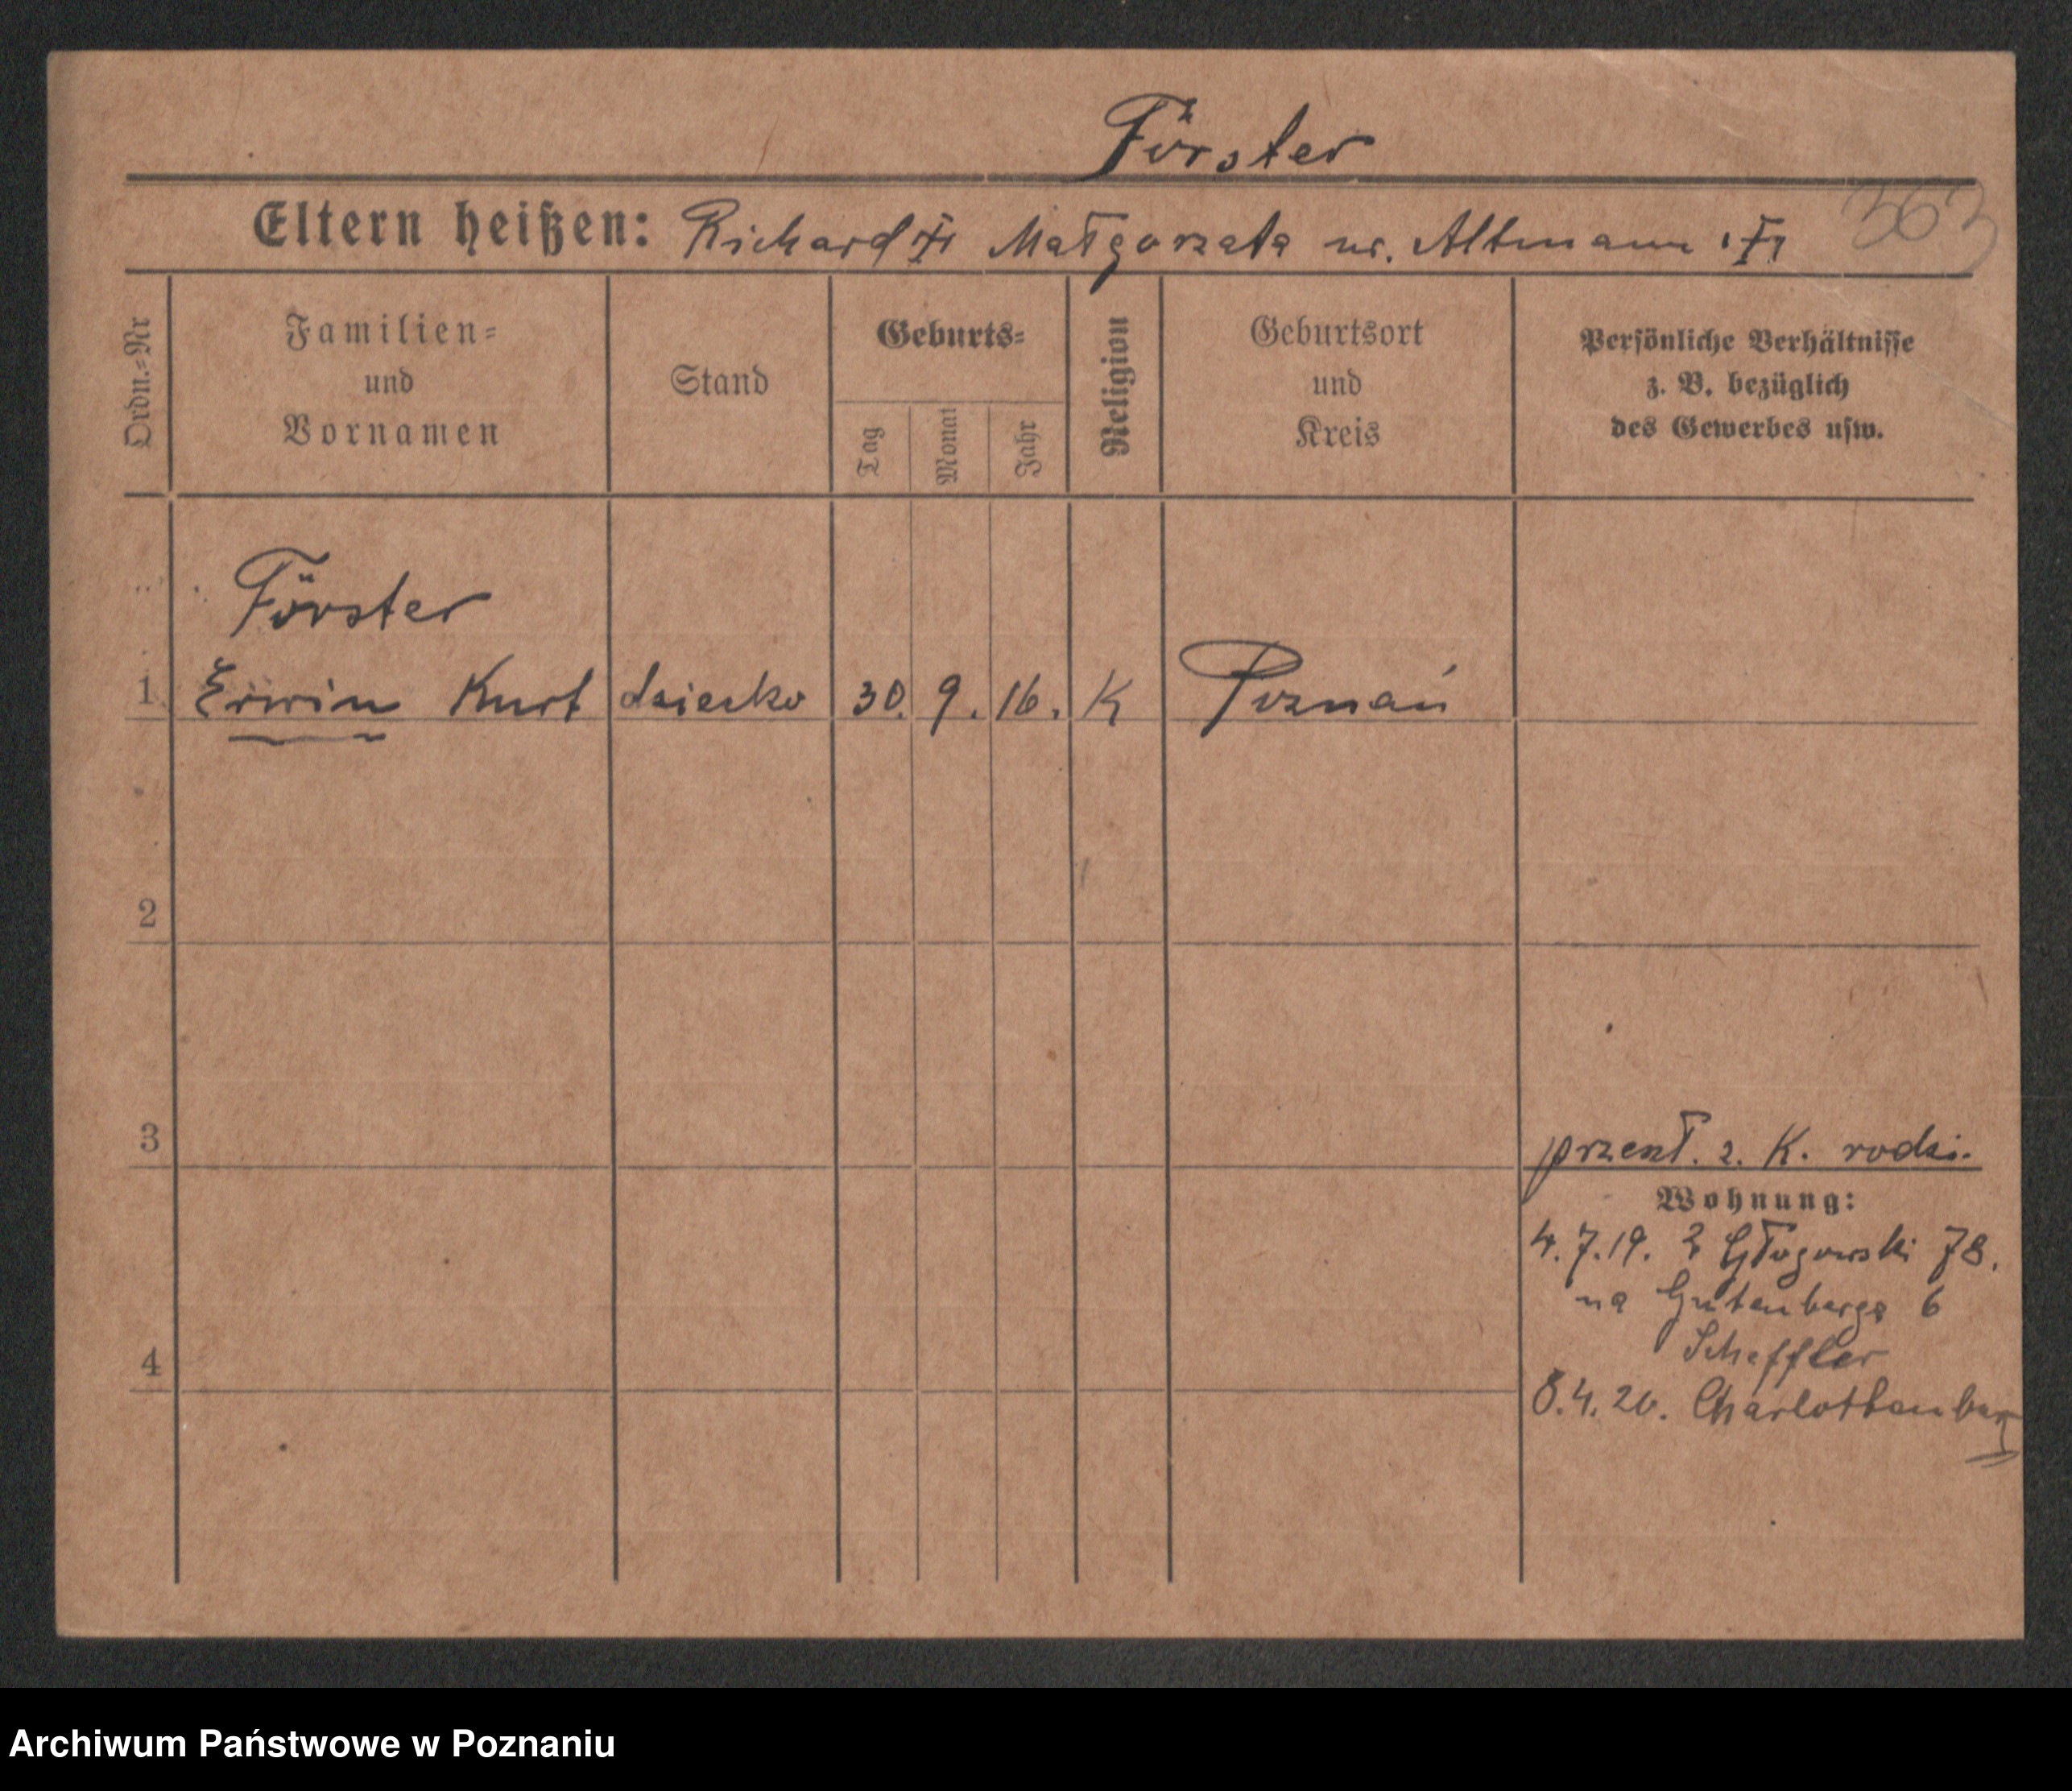 Förster
Eltern heißen: Richard Małgorzata ur. Altmann
363
Ordn.=Nr
Familien=
und
Vornamen
Stand
Geburts=
Tag
Monat
Jahr
Religion
Geburtsort
und
Kreis
Persönliche Verhältnisse
z. B. bezüglich
des Gewerbes usw.
Förster
1 Erwin Kurt dziecko 30. 9. 16. K Poznań
2
3
przesł. z. K. rodzi.
Wohnung:
4.7.19. z Głogowski 78.
na Gutenberga 6
Scheffler
4
8.4.20. Charlottenburg
Archiwum Państwowe w Poznaniu